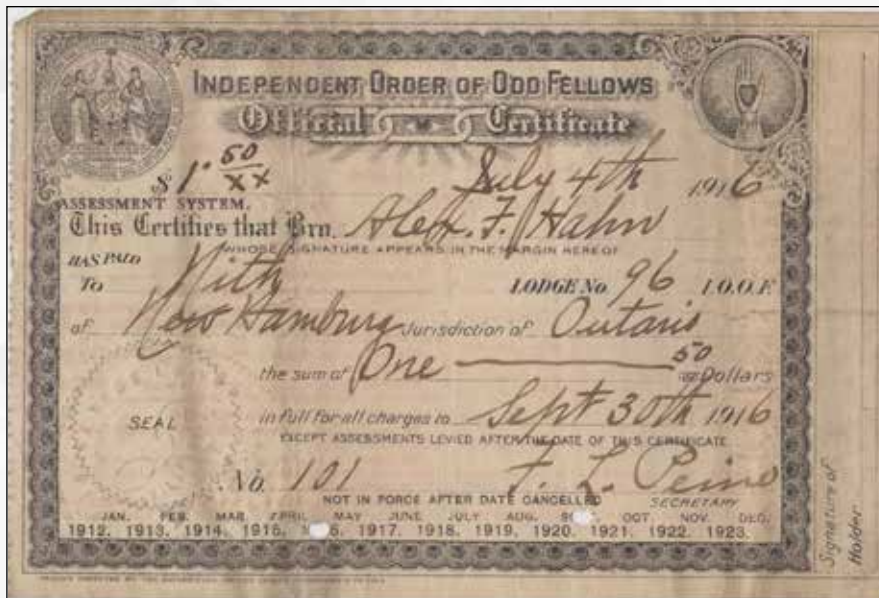 INDEPENDENT ORDER OF ODD FELLOWS
Official Certificate
$1.50/xx
July 4th 1916
ASSESSMENT SYSTEM.
This Certifies that Bro. Alex. F. Hahn
WHOSE SIGNATURE APPEARS IN THE MARGIN HEREOF
HAS PAID
To Nith LODGE No. 96 I.O.O.F.
of New Hamburg Jurisdiction of Ontario
the sum of One 50 Dollars
SEAL
in full for all charges to Sept 30th 1916
EXCEPT ASSESSMENTS LEVIED AFTER THE DATE OF THIS CERTIFICATE
No. 101 F. L. Peine
NOT IN FORCE AFTER DATE CANCELLED SECRETARY
JAN. FEB. MAR. APRIL MAY JUNE JULY AUG. OCT. NOV. DEC.
1912. 1913. 1914. 1915. 6. 1917. 1918. 1919. 1920. 1921. 1922. 1923.
Signature of
Holder